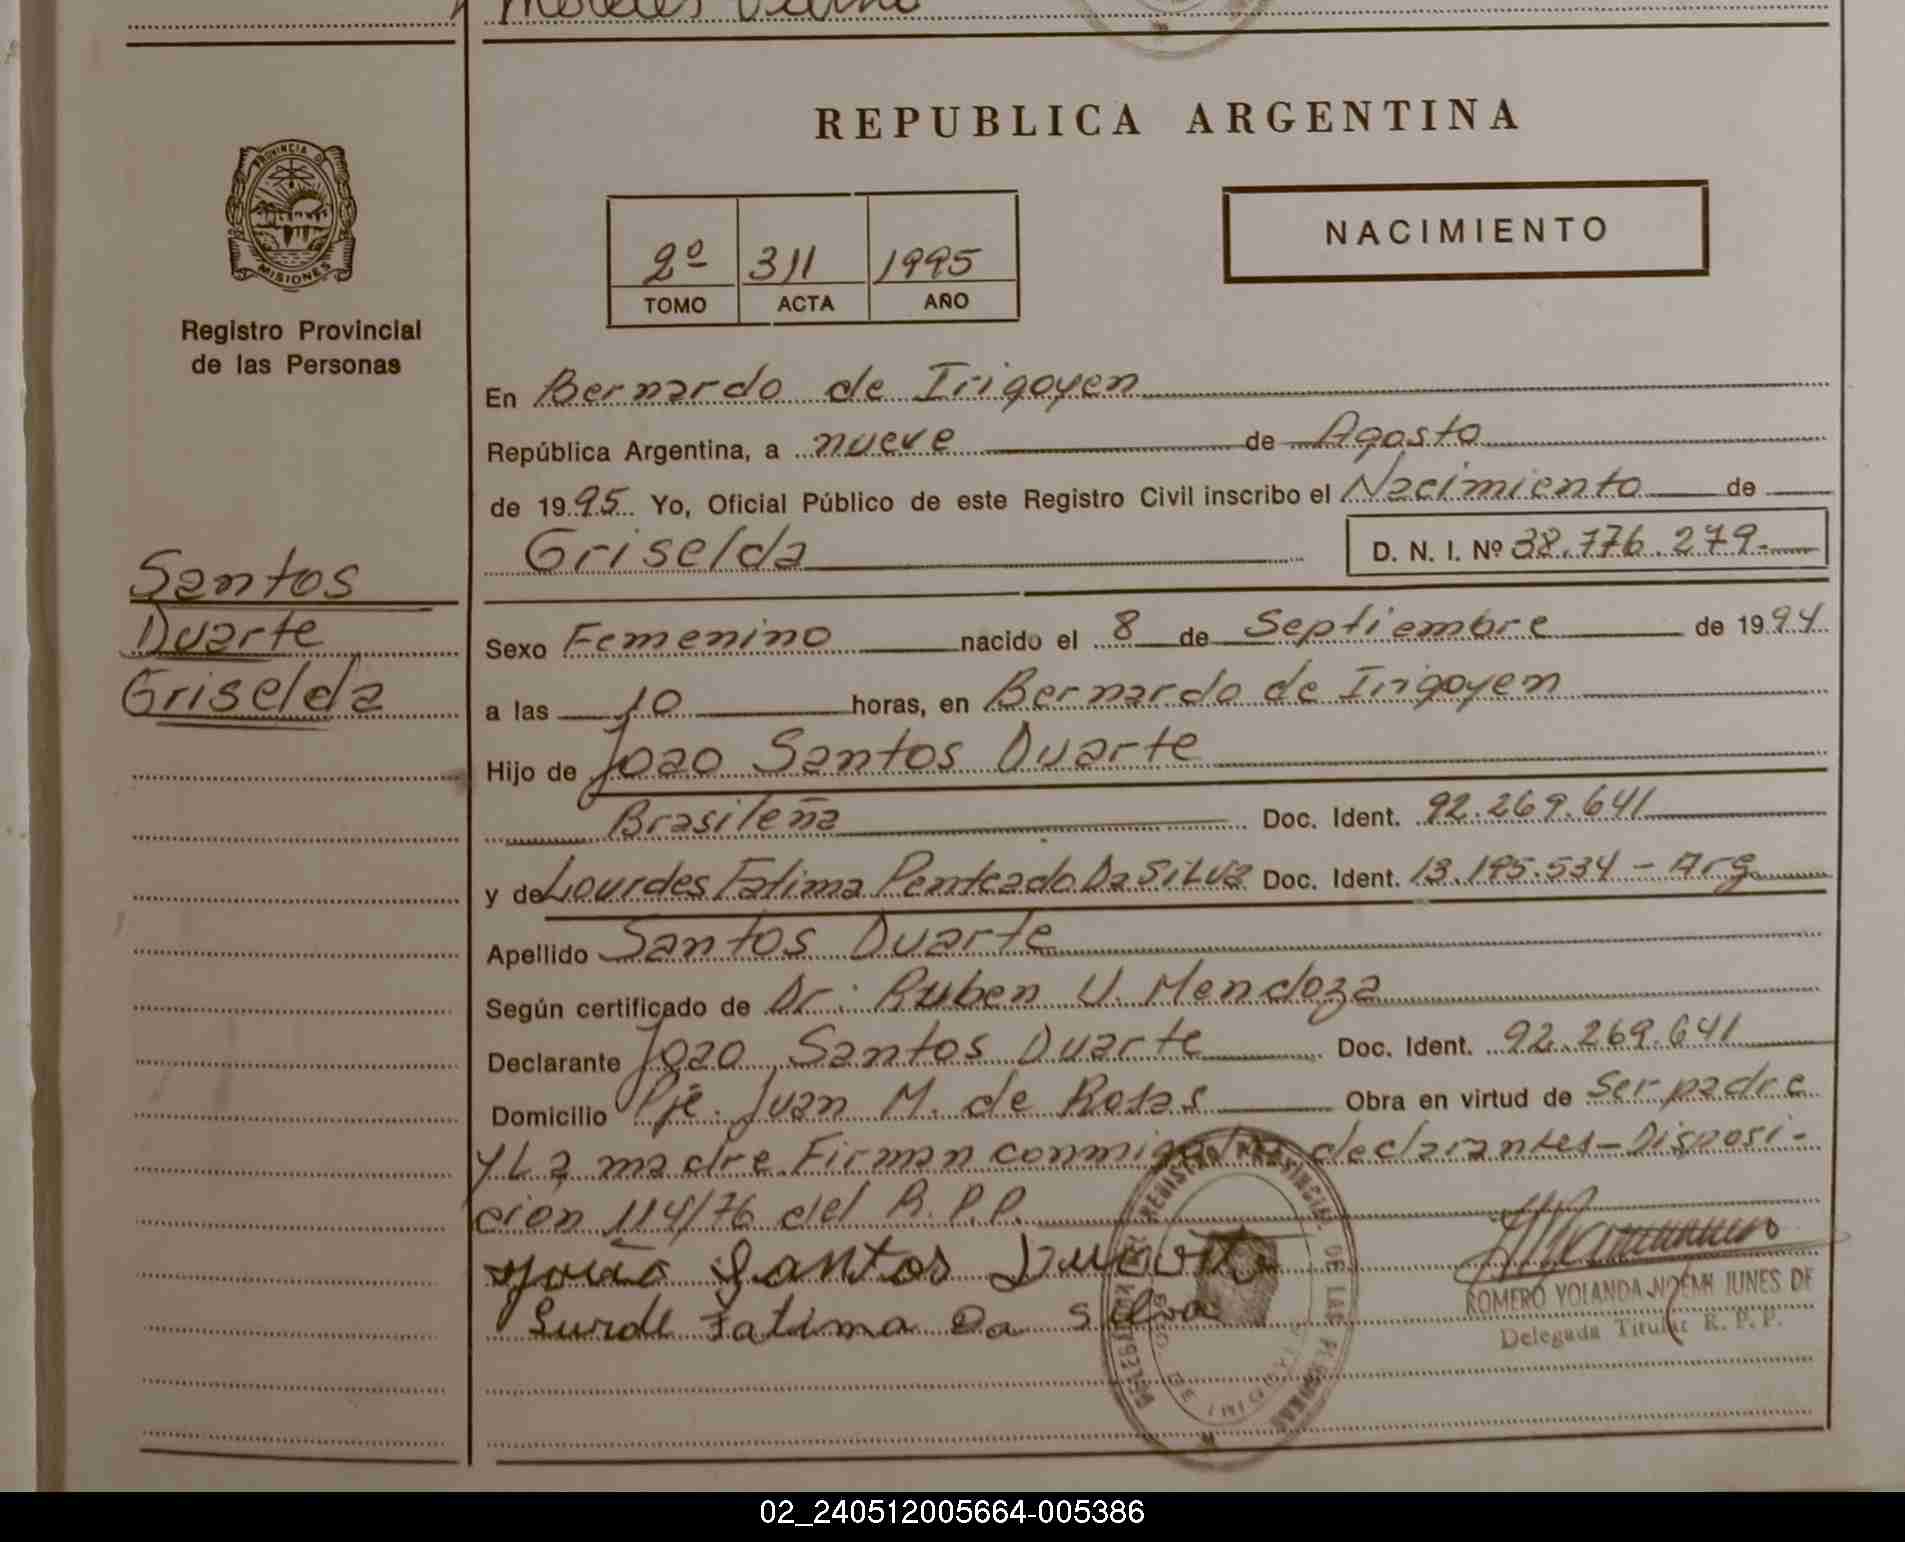 Morales
REPUBLICA ARGENTINA
PROVINCIA DE
MISIONES
Registro Provincial
de las Personas
2º 311 1995
TOMO ACTA AÑO
NACIMIENTO
En Bernardo de Irigoyen
República Argentina, a nueve de Agosto
de 1995. Yo, Oficial Público de este Registro Civil inscribo el Nacimiento de
Griselda D. N. I. Nº 38.776.279.-
Santos
Duarte
Griselda
Sexo Femenino nacido el 8 de Septiembre de 1994
a las 10 horas, en Bernardo de Irigoyen
Hijo de Joao Santos Duarte
Brasileña Doc. Ident. 92.269.641
y de Lourdes Fatima Penteado Da Silva Doc. Ident. 13.195.534 - Arg.
Apellido Santos Duarte
Según certificado de Dr: Ruben U. Mendoza
Declarante Joao Santos Duarte Doc. Ident. 92.269.641
Domicilio Pje. Juan M. de Rosas Obra en virtud de Ser padre
y La madre Firman conmigo declarantes - Disposi-
cion 114/76 del R.P.P.
João Santos Duarte
Lurde Fatima Da Silva
REGISTRO PROVINCIAL DE LAS PERSONAS
ROMERO YOLANDA NOEMI JUNES DE
Delegada Titular R. P. P.
02_240512005664-005386